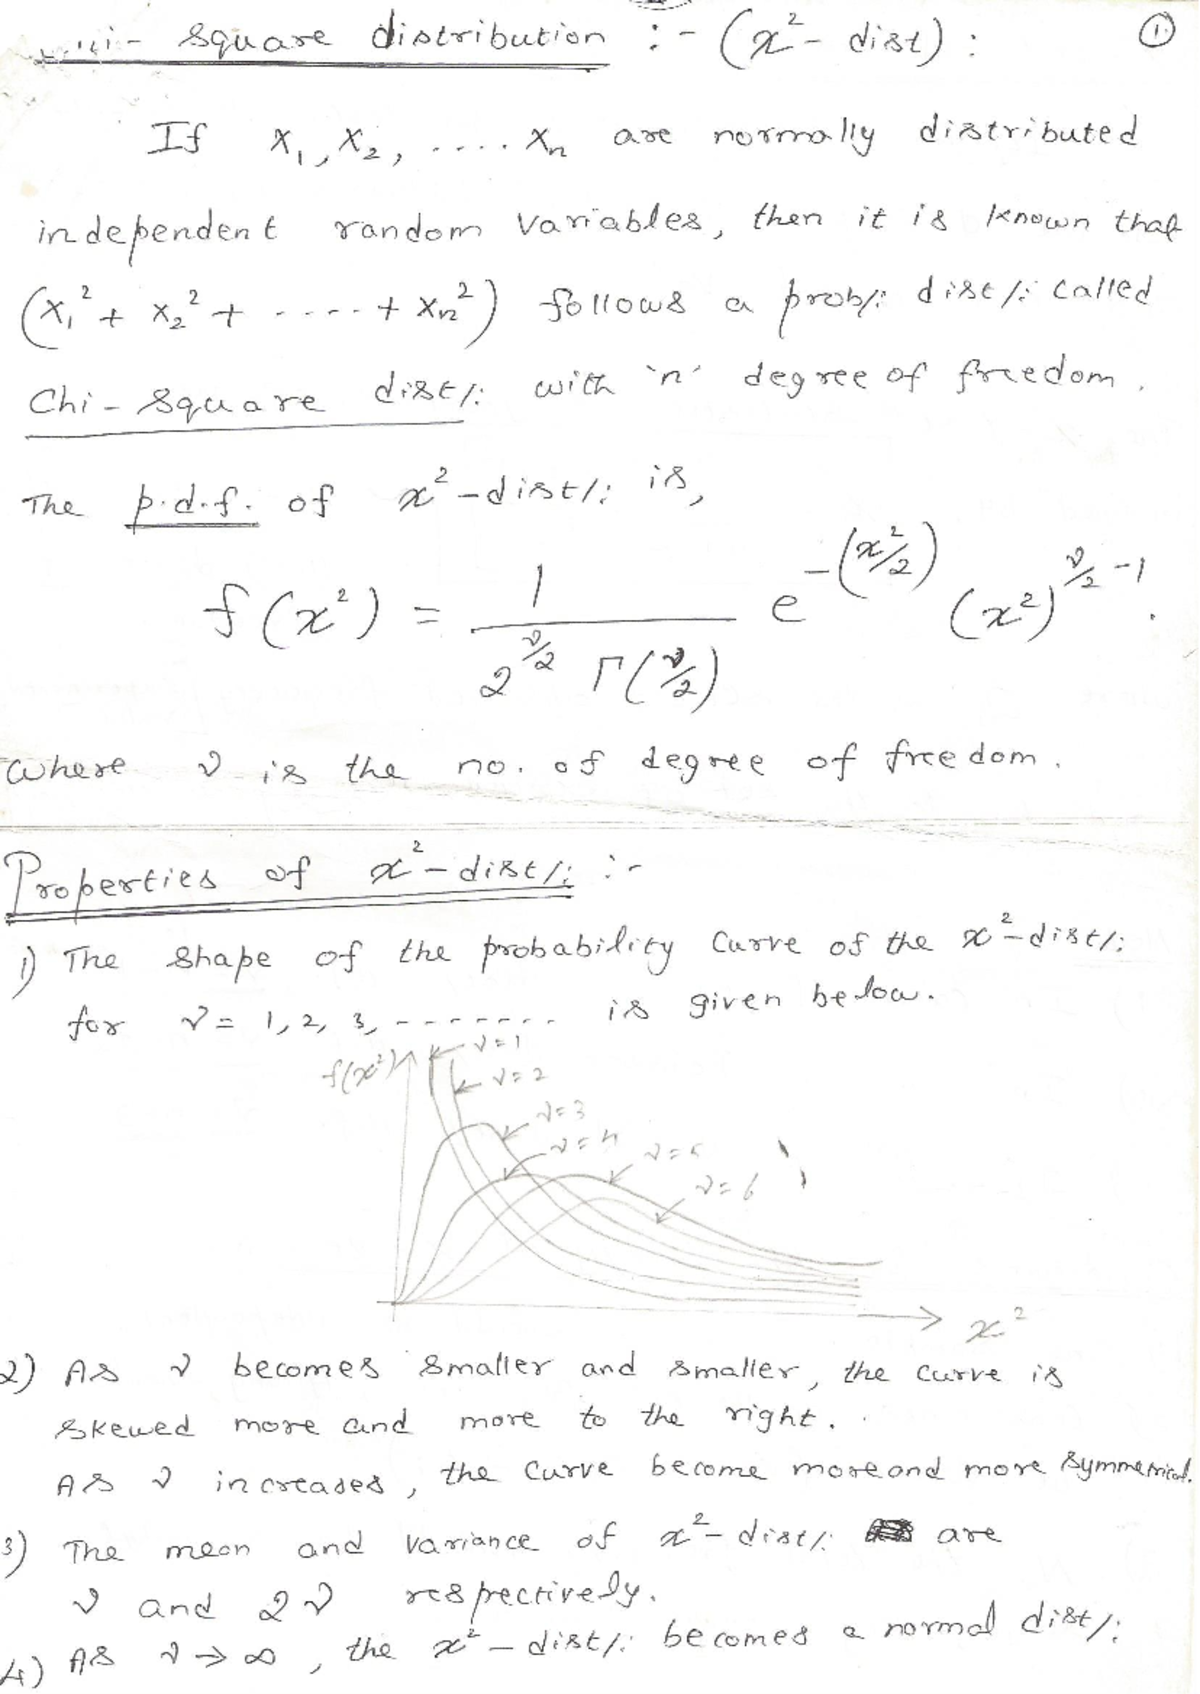 Chi- Square distribution :- (x²- dist) : ①
If X₁, X₂, .... Xn are normally distributed
independent random variables, then it is known that
(X₁² + X₂² + ----- + Xn²) follows a prob/: dist/: called
Chi-Square dist/: with 'n' degree of freedom.
The p.d.f. of x²-dist/: is,
f(x²) = 1 / (2^(ν/2) Γ(ν/2)) e^-(x²/2) (x²)^(ν/2 -1).
Where ν is the no. of degree of freedom.
Properties of x²-dist/: :-
1) The shape of the probability curve of the x²-dist/:
for ν = 1, 2, 3, -------- is given below.
f(x²)
ν=1
ν=2
ν=3
ν=4
ν=5
ν=6
x²
2) As ν becomes smaller and smaller, the curve is
skewed more and more to the right.
As ν increases, the curve become more and more symmetrical.
3) The mean and variance of x²-dist/: are
ν and 2ν respectively.
4) As ν → ∞, the x²-dist/: becomes a normal dist/: